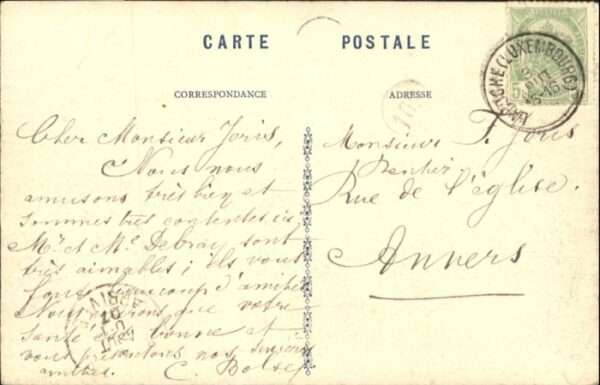 CARTE POSTALE
CORRESPONDANCE
ADRESSE
Cher Monsieur Joris,
Nous nous
amusons très bien et
sommes très contentes ici
Mr et Me Debray sont
très aimables ; ils vous
font beaucoup d'amitiés
Nous espérons que votre
santé est bonne et
vous présentons nos sincères
amitiés.
C.
Monsieur T. Joris
Rentier
Rue de l'église.
Anvers
(LUXEMBOURG)